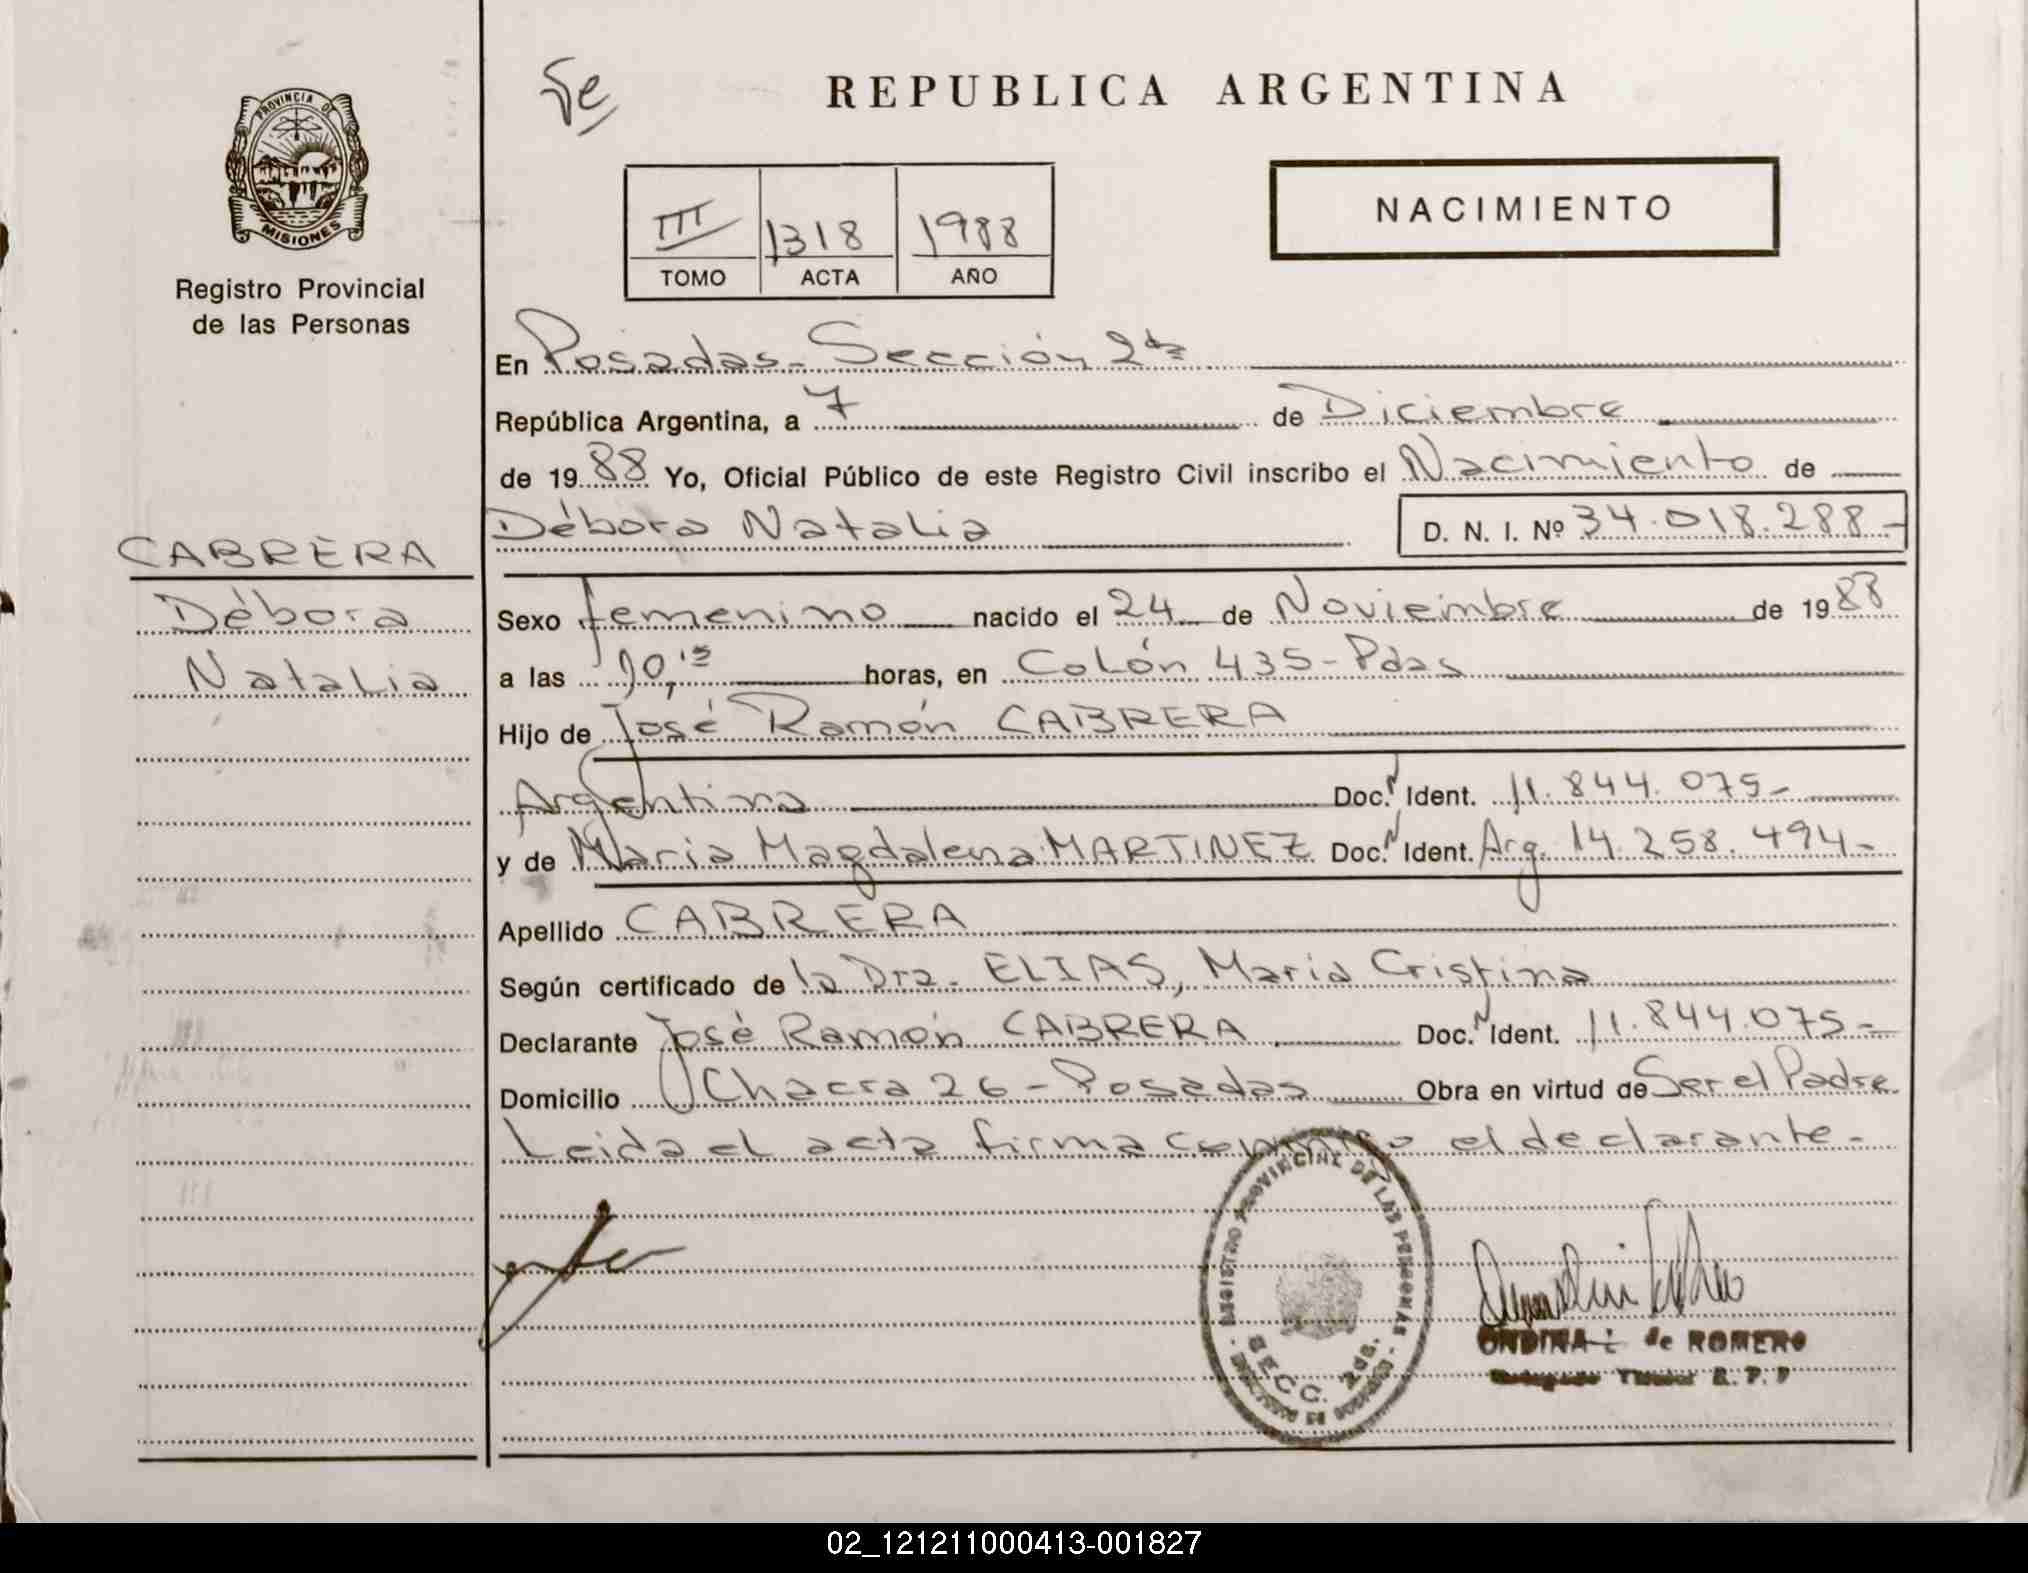 Se
REPUBLICA ARGENTINA
PROVINCIA DE
MISIONES
Registro Provincial
de las Personas
III 1318 1988
TOMO ACTA AÑO
NACIMIENTO
En Posadas - Sección 2da
República Argentina, a 7 de Diciembre
de 1988 Yo, Oficial Público de este Registro Civil inscribo el Nacimiento de
Débora Natalia D. N. I. Nº 34.018.288-
CABRERA
Débora
Natalia
Sexo femenino nacido el 24 de Novieimbre de 1988
a las 10,15 horas, en Colón 435-Pdas
Hijo de José Ramón CABRERA
Argentina Doc. N Ident. 11.844.075-
y de María Magdalena MARTINEZ Doc. N Ident. Arg. 14.258.494-
Apellido CABRERA
Según certificado de la Dra. ELIAS, María Cristina
Declarante José Ramón CABRERA Doc. N Ident. 11.844.075-
Domicilio Chacra 26 - Posadas Obra en virtud de Ser el Padre
Leida el acta firma conmigo el declarante-
REGISTRO PROVINCIAL DE LAS PERSONAS
SECC. 2da.
ONDINA de ROMERO
Titular R. P. P
02_121211000413-001827